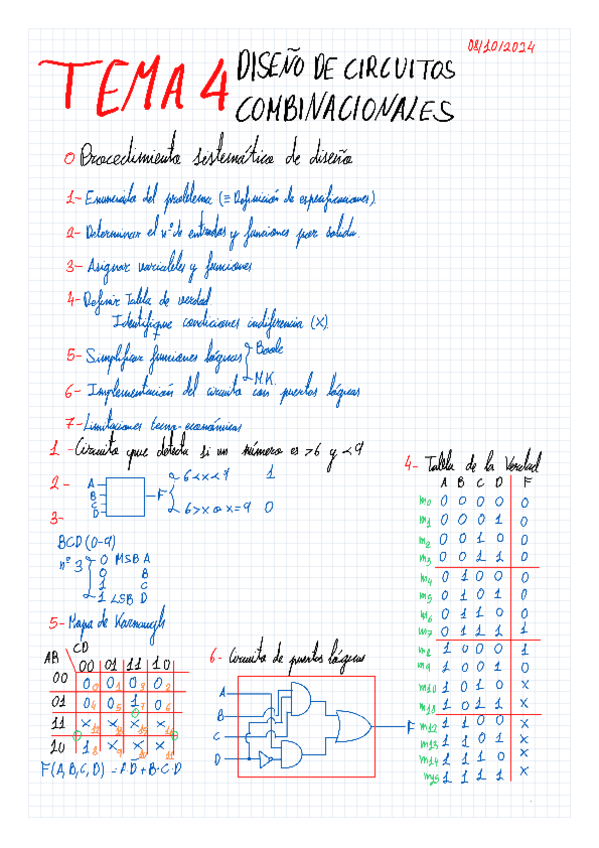 08/10/2024
TEMA 4 DISEÑO DE CIRCUITOS
COMBINACIONALES
o Procedimiento sistemático de diseño
1- Enunciado del problema (≡ Definición de especificaciones)
2- Determinar el nº de entradas y funciones por salida.
3- Asignar variables y funciones
4- Definir Tabla de verdad
Identifique condiciones indiferencia (X).
5- Simplificar funciones lógicas
Boole
M.K.
6- Implementación del circuito con puertas lógicas
7- Limitaciones tecno-económicas
1 - Circuito que detecta si un número es >6 y <9
2 -
A
B
C
D
F
6<x<9 1
6>x o x=9 0
3-
BCD (0-9)
nº 3
0 MSB A
0 B
1 C
1 LSB D
4- Tabla de la Verdad
A B C D F
m0 0 0 0 0 0
m1 0 0 0 1 0
m2 0 0 1 0 0
m3 0 0 1 1 0
m4 0 1 0 0 0
m5 0 1 0 1 0
m6 0 1 1 0 0
m7 0 1 1 1 1
m8 1 0 0 0 1
m9 1 0 0 1 0
m10 1 0 1 0 X
1 0 1 1 X
m12 1 1 0 0 X
m13 1 1 0 1 X
m14 1 1 1 0 X
m15 1 1 1 0 X
5- Mapa de Karnaugh
AB CD
00 01 11 10
00 0 0 0 1 0 3 0 2
01 0 4 0 5 1 7 0 6
11 X 12 X 13 X 15 X 14
10 1 8 X 9 X 11 X 10
F(A,B,C,D) = AD̅ + B·C·D
6- Circuito de puertas lógicas
A
B
C
D
F